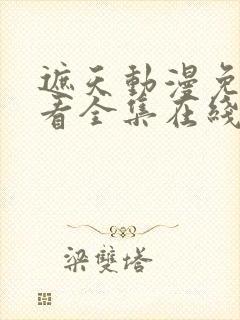 遮天動漫免
看全集在綫
梁雙塔